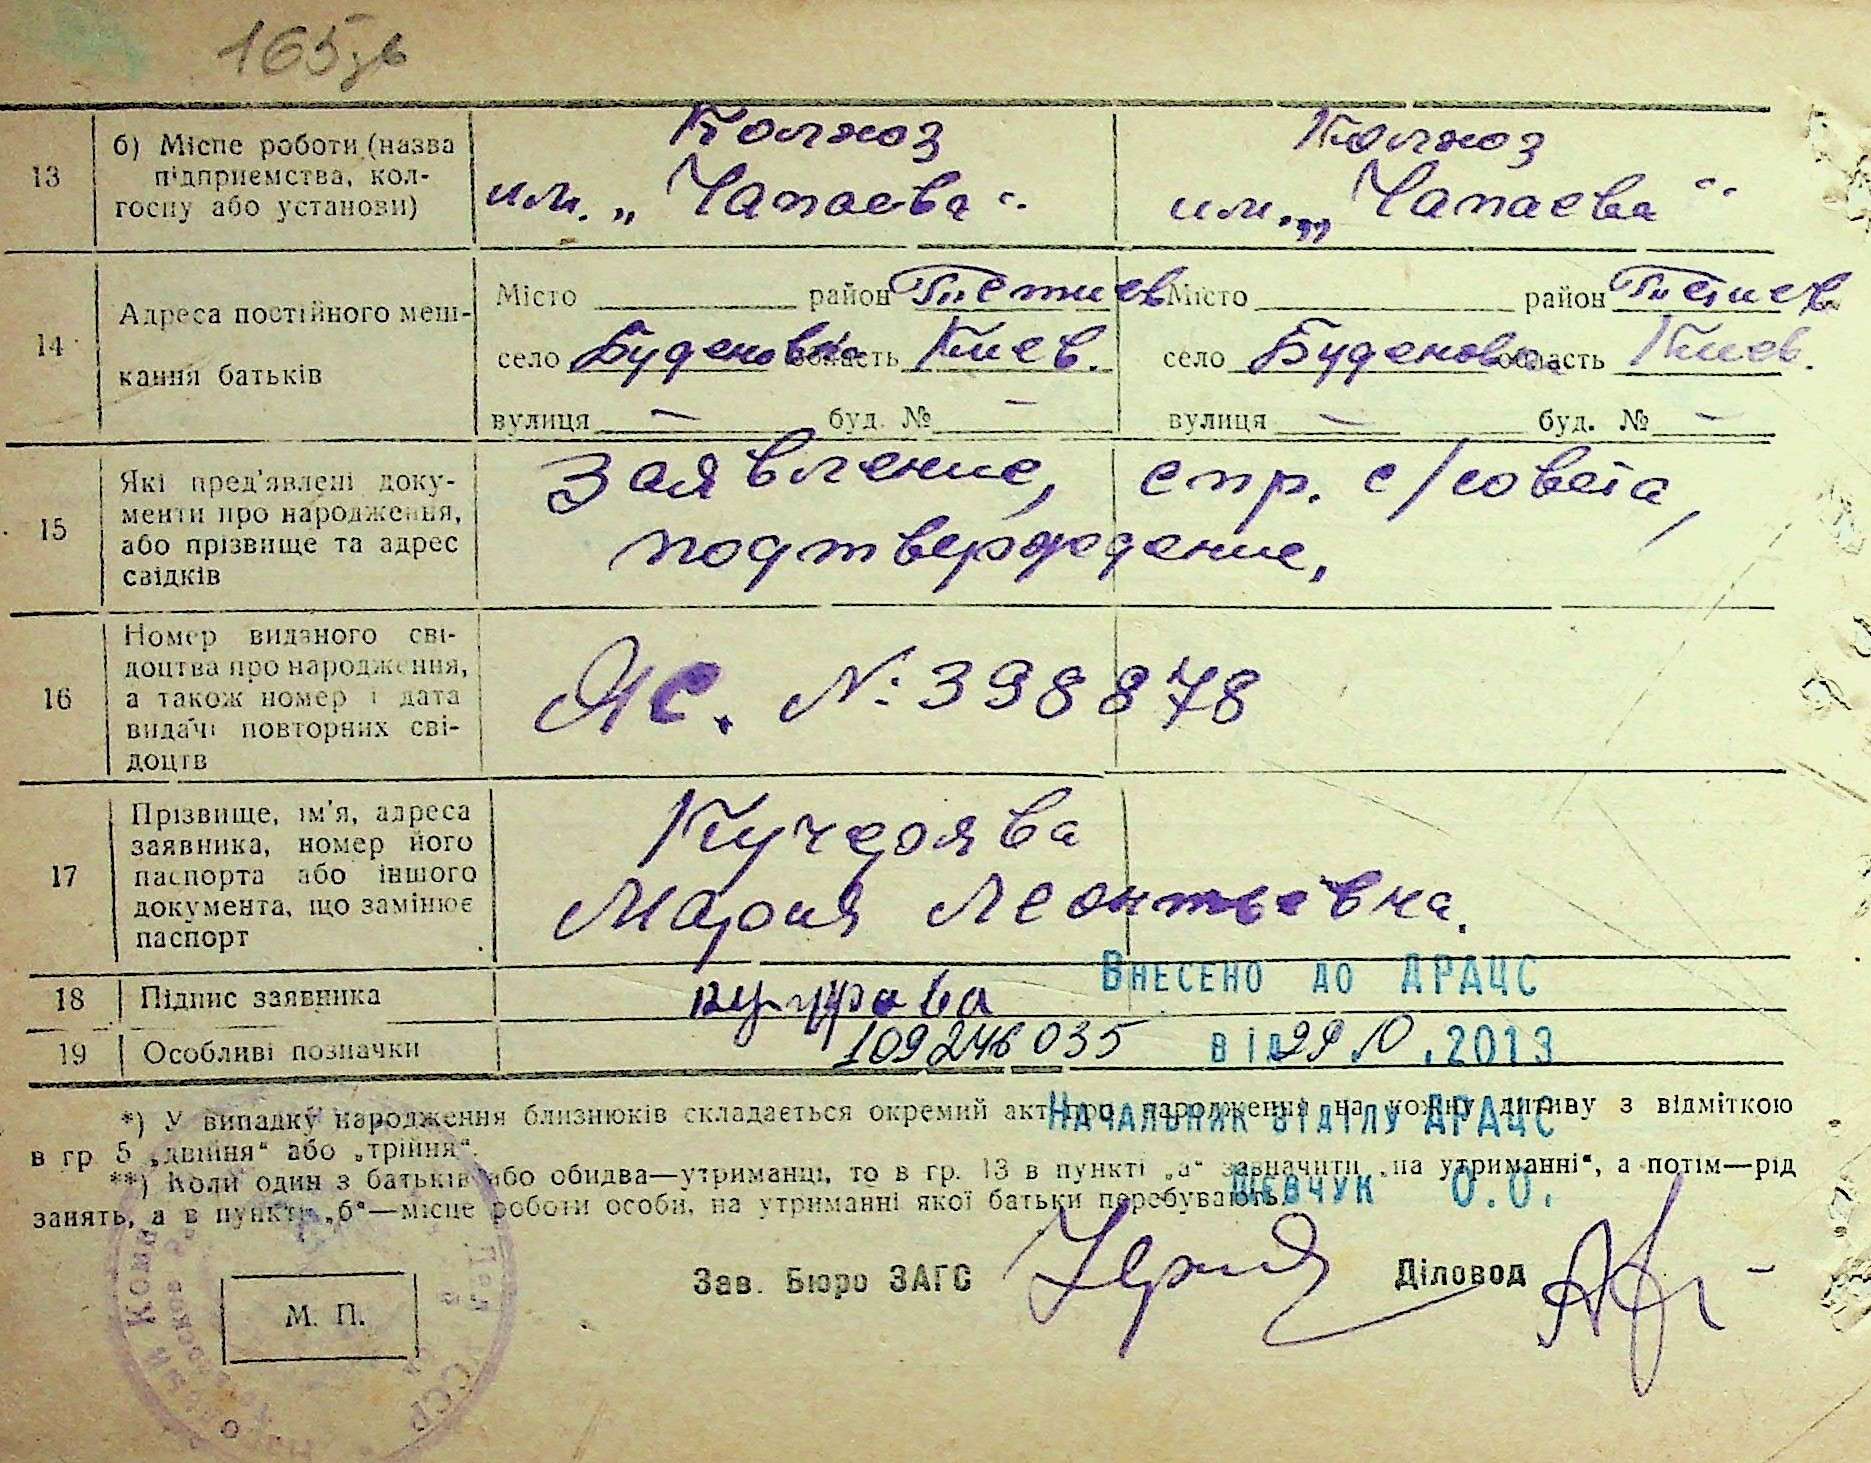 165 зв
13
б) Місце роботи (назва підприємства, колгоспу або установи)
Колхоз им. „Чапаева“
Колхоз им. „Чапаева“
14
Адреса постійного мешкання батьків
Місто район Тетиев
село Буденовка область Киев.
вулиця — буд. № —
Місто район Тетиев
село Буденовка область Киев.
вулиця — буд. № —
15
Які пред'явлені документи про народження, або прізвище та адрес свідків
Заявление, спр. с/совета,
подтверждение,
16
Номер виданого свідоцтва про народження, а також номер і дата видачі повторних свідоцтв
ЯС. №: 398878
17
Прізвище, ім'я, адреса заявника, номер його паспорта або іншого документа, що замінює паспорт
Кучерява
Мария Леонтьевна.
18
Підпис заявника
Внесено до ДРАЦС
19
Особливі позначки
109246035 від 29.10.2013
Начальник відділу ДРАЦС
Шевчук О.О.
*) У випадку народження близнюків складається окремий акт про народження на кожну дитину з відміткою
в гр 5 „двійня“ або „трійня“.
**) Коли один з батьків або обидва—утриманці, то в гр. 13 в пункті „а“ зазначити „на утриманні“, а потім—рід
занять, а в пункті „б“—місце роботи особи, на утриманні якої батьки перебувають.
Зав. Бюро ЗАГС
Діловод
М. П.